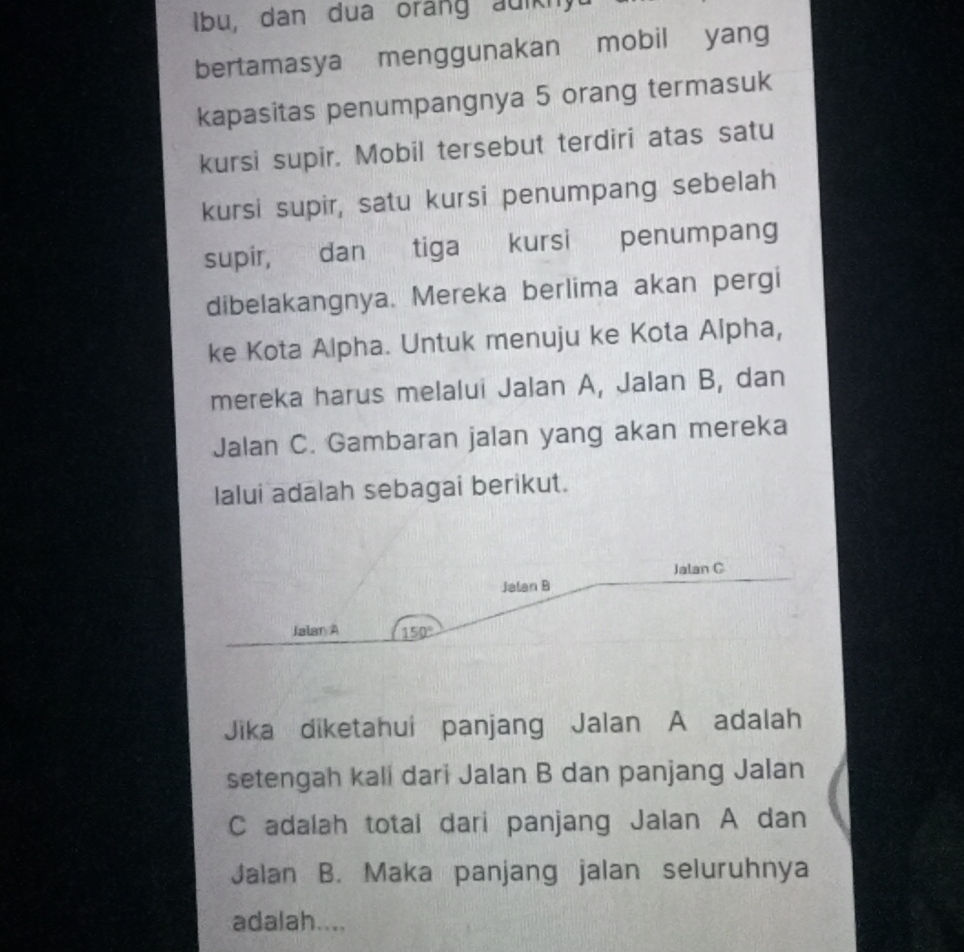 Ibu, dan dua orang
bertamasya menggunakan mobil yang
kapasitas penumpangnya 5 orang termasuk
kursi supir. Mobil tersebut terdiri atas satu
kursi supir, satu kursi penumpang sebelah
supir, dan tiga kursi penumpang
dibelakangnya. Mereka berlima akan pergi
ke Kota Alpha. Untuk menuju ke Kota Alpha,
mereka harus melalui Jalan A, Jalan B, dan
Jalan C. Gambaran jalan yang akan mereka
lalui adalah sebagai berikut.
Jalan C
Jalan B
Jalan A
150°
Jika diketahui panjang Jalan A adalah
setengah kali dari Jalan B dan panjang Jalan
C adalah total dari panjang Jalan A dan
Jalan B. Maka panjang jalan seluruhnya
adalah....